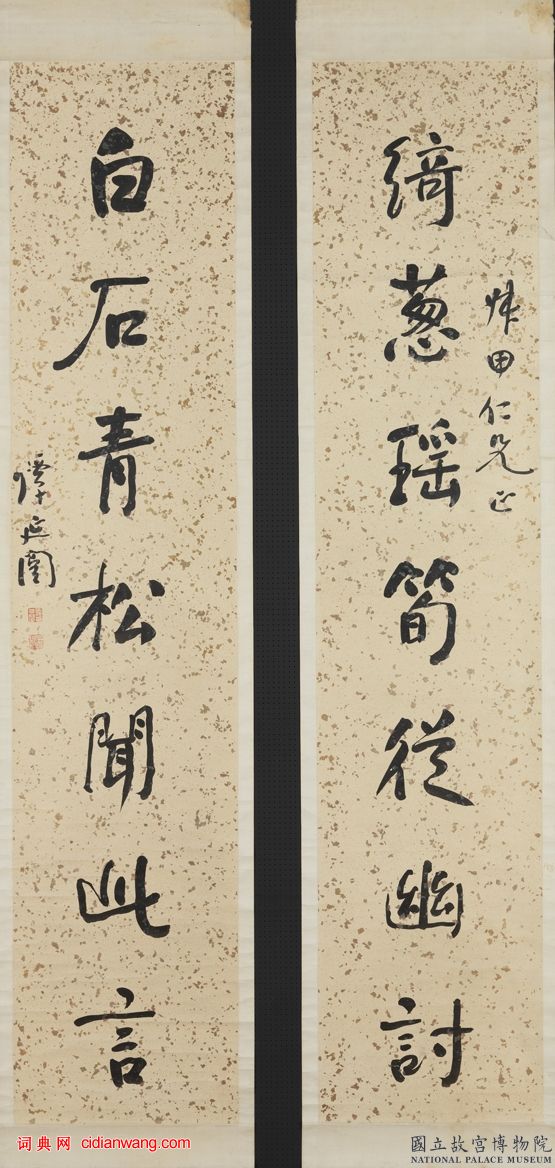 綺葱瑶筍從幽討
田仁兄正
白石青松聞此言
譚延闓
國立故宮博物院
NATIONAL PALACE MUSEUM
词典网 cidianwang.com